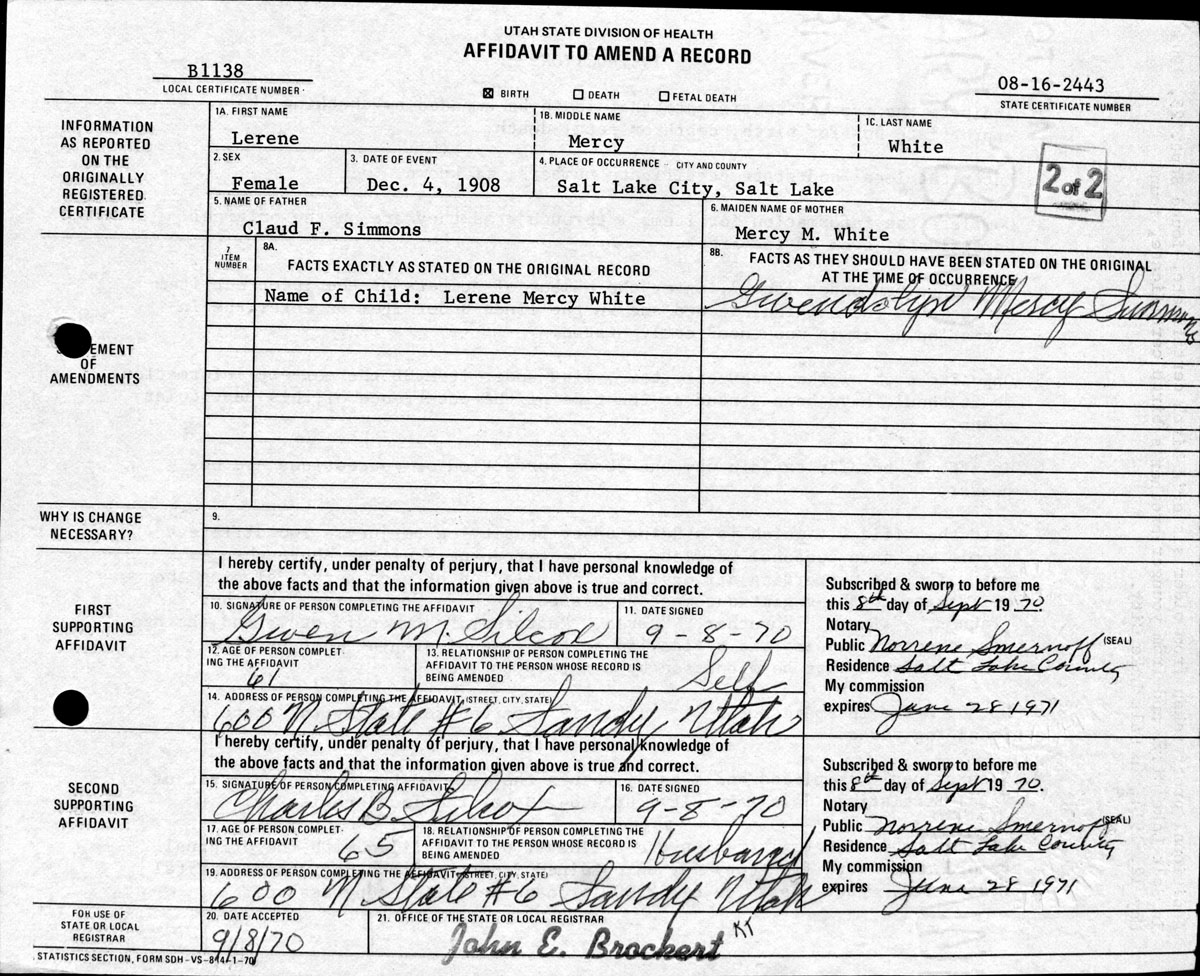 UTAH STATE DIVISION OF HEALTH
AFFIDAVIT TO AMEND A RECORD
B1138
LOCAL CERTIFICATE NUMBER
☒ BIRTH ☐ DEATH ☐ FETAL DEATH
08-16-2443
STATE CERTIFICATE NUMBER
INFORMATION
AS REPORTED
ON THE
ORIGINALLY
REGISTERED
CERTIFICATE
1A. FIRST NAME
Lerene
1B. MIDDLE NAME
Mercy
1C. LAST NAME
White
2. SEX
Female
3. DATE OF EVENT
Dec. 4, 1908
4. PLACE OF OCCURRENCE - CITY AND COUNTY
Salt Lake City, Salt Lake
2 of 2
5. NAME OF FATHER
Claud F. Simmons
6. MAIDEN NAME OF MOTHER
Mercy M. White
7
ITEM
NUMBER
8A.
FACTS EXACTLY AS STATED ON THE ORIGINAL RECORD
8B.
FACTS AS THEY SHOULD HAVE BEEN STATED ON THE ORIGINAL
AT THE TIME OF OCCURRENCE
Name of Child: Lerene Mercy White
Gwendolyn Mercy Simmons
EMENT
OF
AMENDMENTS
WHY IS CHANGE
NECESSARY?
9.
FIRST
SUPPORTING
AFFIDAVIT
I hereby certify, under penalty of perjury, that I have personal knowledge of
the above facts and that the information given above is true and correct.
10. SIGNATURE OF PERSON COMPLETING THE AFFIDAVIT
Gwen M. Silcox
11. DATE SIGNED
9-8-70
12. AGE OF PERSON COMPLET-
ING THE AFFIDAVIT
61
13. RELATIONSHIP OF PERSON COMPLETING THE
AFFIDAVIT TO THE PERSON WHOSE RECORD IS
BEING AMENDED
Self
14. ADDRESS OF PERSON COMPLETING THE AFFIDAVIT (STREET, CITY, STATE)
600 N State #6 Sandy Utah
Subscribed & sworn to before me
this 8th day of Sept 1970.
Notary
Public Norrene Smernoff (SEAL)
Residence Salt Lake County
My commission
expires June 28 1971
SECOND
SUPPORTING
AFFIDAVIT
I hereby certify, under penalty of perjury, that I have personal knowledge of
the above facts and that the information given above is true and correct.
15. SIGNATURE OF PERSON COMPLETING AFFIDAVIT
Charles B. Silcox
16. DATE SIGNED
9-8-70
17. AGE OF PERSON COMPLET-
ING THE AFFIDAVIT
65
18. RELATIONSHIP OF PERSON COMPLETING THE
AFFIDAVIT TO THE PERSON WHOSE RECORD IS
BEING AMENDED
Husband
19. ADDRESS OF PERSON COMPLETING THE AFFIDAVIT (STREET, CITY, STATE)
600 N State #6 Sandy Utah
Subscribed & sworn to before me
this 8th day of Sept 1970.
Notary
Public Norrene Smernoff (SEAL)
Residence Salt Lake County
My commission
expires June 28 1971
FOR USE OF
STATE OR LOCAL
REGISTRAR
20. DATE ACCEPTED
9/8/70
21. OFFICE OF THE STATE OR LOCAL REGISTRAR
John E. Brockert KT
STATISTICS SECTION, FORM SDH-VS-8